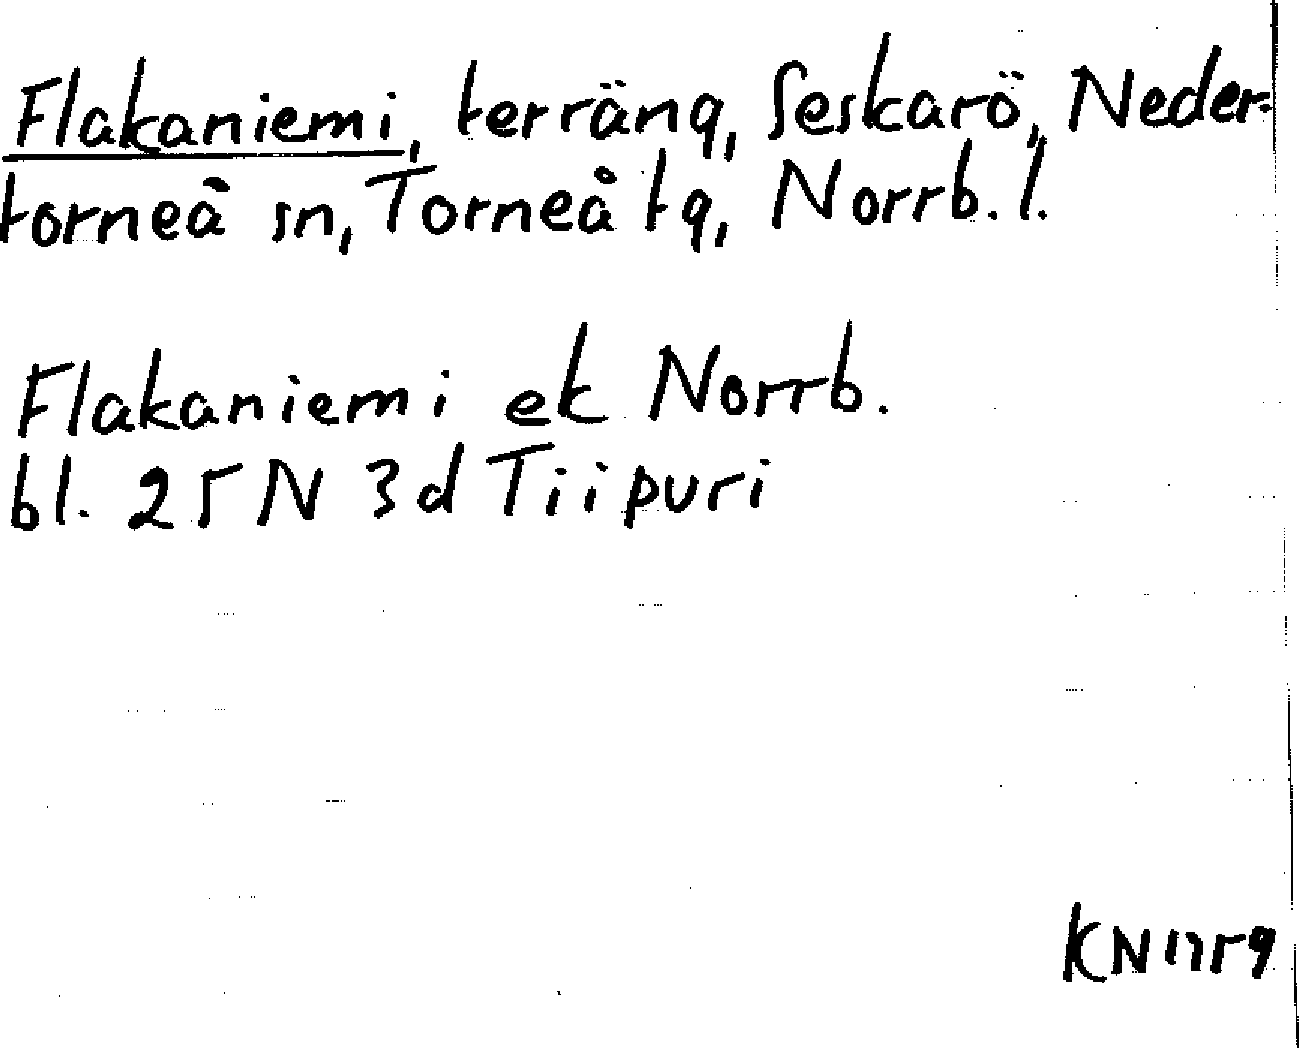 Flakaniemi, terräng, Seskarö, Neder-
torneå sn, Torneå tg, Norrb. l.
Flakaniemi ek Norrb.
bl. 25 N 3d Tiipuri